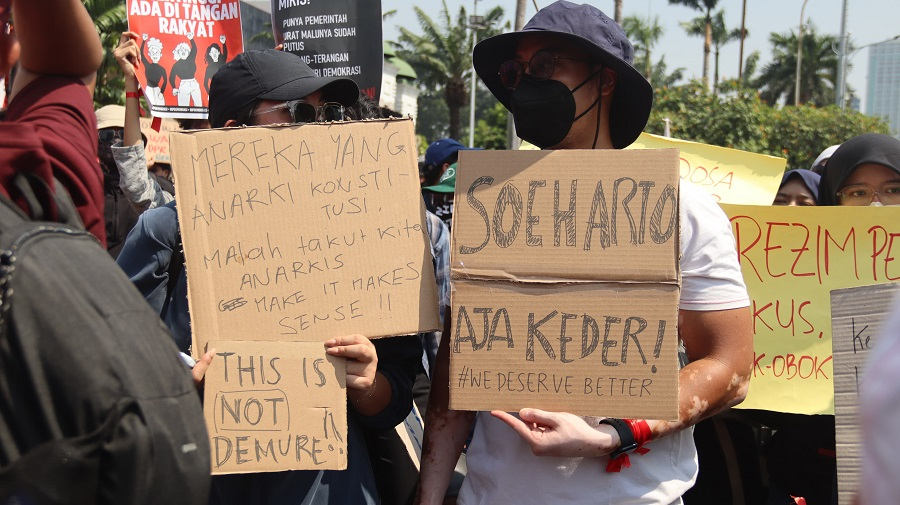 ADA DI TANGAN
RAKYAT
PUNYA PEMERINTAH
URAT MALUNYA SUDAH
PUTUS
DEMOKRASI
MEREKA YANG
ANARKI KONSTI-
TUSI.
MALAH TAKUT KITA
ANARKIS
MAKE IT MAKES
SENSE!!
THIS IS
NOT
DEMURE!!
SOEHARTO
AJA KEDER!
#WE DESERVE BETTER
DOSA
REZIM
KUS,
K-OBOK